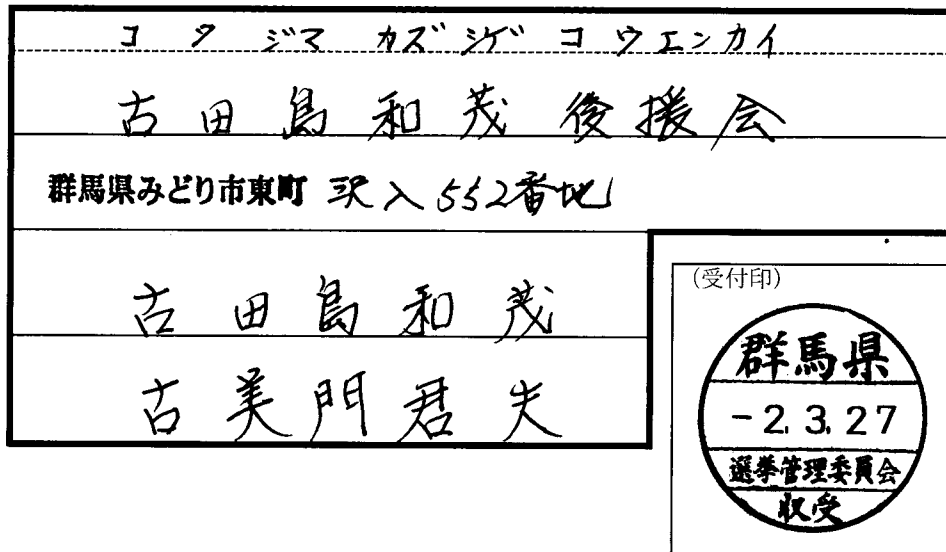 コタジマ カズシゲ コウエンカイ
古田島和茂後援会
群馬県みどり市東町 沢入552番地
古田島和茂
古美門君夫
(受付印)
群馬県
-2.3.27
選挙管理委員会
収受